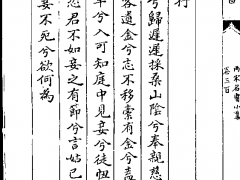 兩宋名賢小集
卷三百
行
兮歸遲遲採桑山陰兮奉親慈
遺金兮志不移索有金兮
年兮入可知庭中見妾兮徒忸
忍君不如妾之有節兮言姑已
妾不死兮欲何為